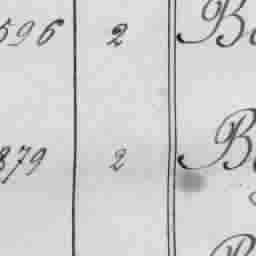 596 2
879 2